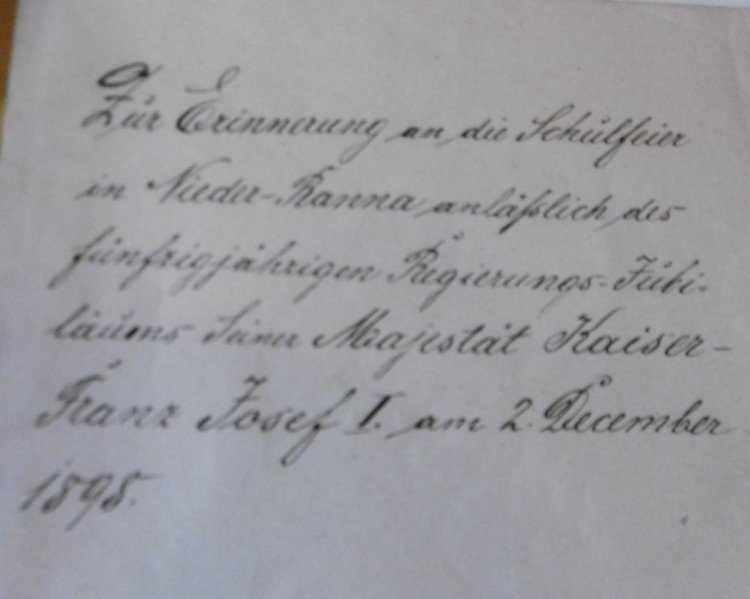 Zur Erinnerung an die Schulfeier
in Nieder-Ranna anläßlich des
fünfzigjährigen Regierungs-Jubi-
läums Seiner Majestät Kaiser-
Franz Josef I. am 2. December
1898.